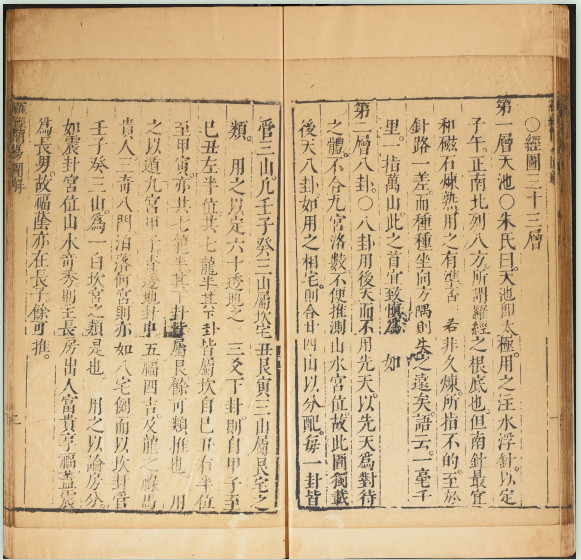 〇經圖三十三層
第一層天池〇朱氏曰天池卽太極用之注水浮針以定
子午正南北列八方所謂羅經之根底也但南針最宜
和磁石煉熟用之有準否 若非久煉所指不的至於
針路一差而種種坐向方隅則失之遠矣語云毫千
里一指萬山此之首宜致慎爲 如
第二層八卦〇八卦用後天而不用先天以先天爲對待
之體不合九宮洛數不便推測山水宮位故此圖獨載
後天八卦如用之相宅則合廿四山以分配每一卦皆
管三山凡壬子癸三山屬坎宅丑艮寅三山屬艮宅之
類 用之以定六十透地之 三爻下卦則自甲子至
己丑左半位其七龍半其下卦皆屬坎自己丑右半位
至甲寅亦共七龍半其下卦皆屬艮餘可類推也 用
之以遁九宮甲子查透地卦中五福四吉及龍之祿馬
貴人三奇八門泊落何宮則亦如八宅例而以坎卦管
壬子癸三山爲一白坎宮之類是也 用之以論房分
如震卦宮位山水奇秀則主長房出人富貴亨福蓋震
爲長男故福蔭亦在長子餘可推